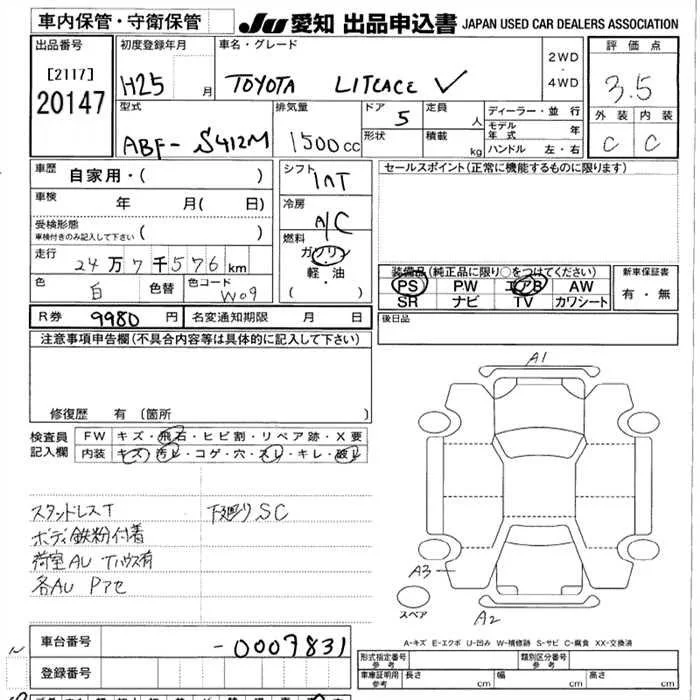 車内保管・守衛保管
JU 愛知 出品申込書 JAPAN USED CAR DEALERS ASSOCIATION
出品番号 初度登録年月 車名・グレード 2WD・4WD 評価点
[2117] H25 月 TOYOTA LITEACE V 3.5
20147
型式 排気量 ドア 5 定員 人 ディーラー・並行 外装 内装
ABF-S412M 1500cc 形状 積載 kg モデル年式 年 C C
ハンドル 左・右
車歴 自家用・( ) シフト INT セールスポイント(正常に機能するものに限ります)
車検 年 月( 日) 冷房 A/C
受検形態 ( )
車検付きのみ記入して下さい
燃料 ガソリン・軽油 ( )
走行 24万7千576km
装備品(純正品に限り○をつけてください) 新車保証書
色 白 色替 色コード W09 PS PW エアB AW 有・無
SR ナビ TV カワシート
R券 9980円 名変通知期限 月 日 後日品
注意事項申告欄(不具合内容等は具体的に記入して下さい)
A1
修復歴 有 (箇所
検査員記入欄 FW キズ・飛石・ヒビ割・リペア跡・X要
内装 キズ・汚レ・コゲ・穴・スレ・キレ・破レ
スタッドレスT 下廻りSC
ボディ鉄粉付着
荷室AU Tハウス有
各AU Pアセ
A3
スペア
A2
A-キズ E-エクボ U-凹み W-補修跡 S-サビ C-腐食 XX-交換済
車台番号 -0007831
登録番号
形式指定番号 参考 類別区分番号 参考
車庫証明用 参考 長さ cm 幅 cm 高さ cm